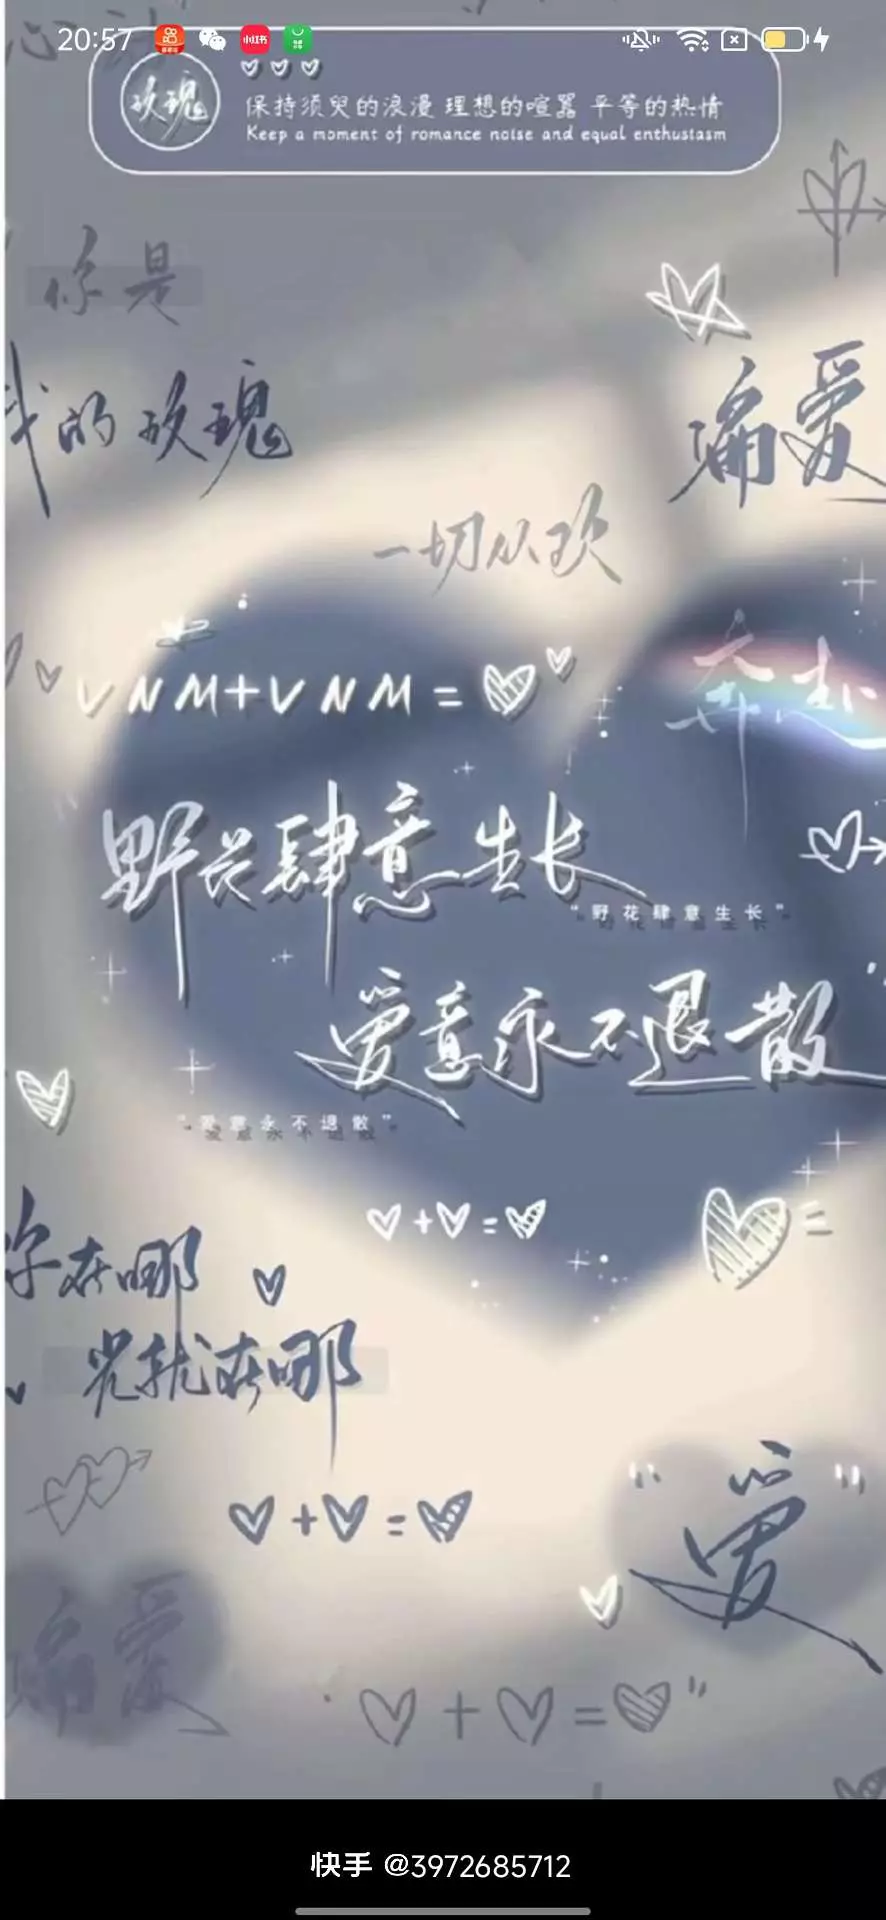 20:57
玫瑰
保持须臾的浪漫 理想的喧嚣 平等的热情
Keep a moment of romance noise and equal enthusiasm
你是
我的玫瑰
偏爱
一切从欢
奔赴
VNM+VNM=
野花肆意生长
"野花肆意生长"
爱意永不退散
"爱意永不退散"
+ =
=
你在哪
光就在哪
+ =
"爱"
偏爱
+ = "
快手 @3972685712